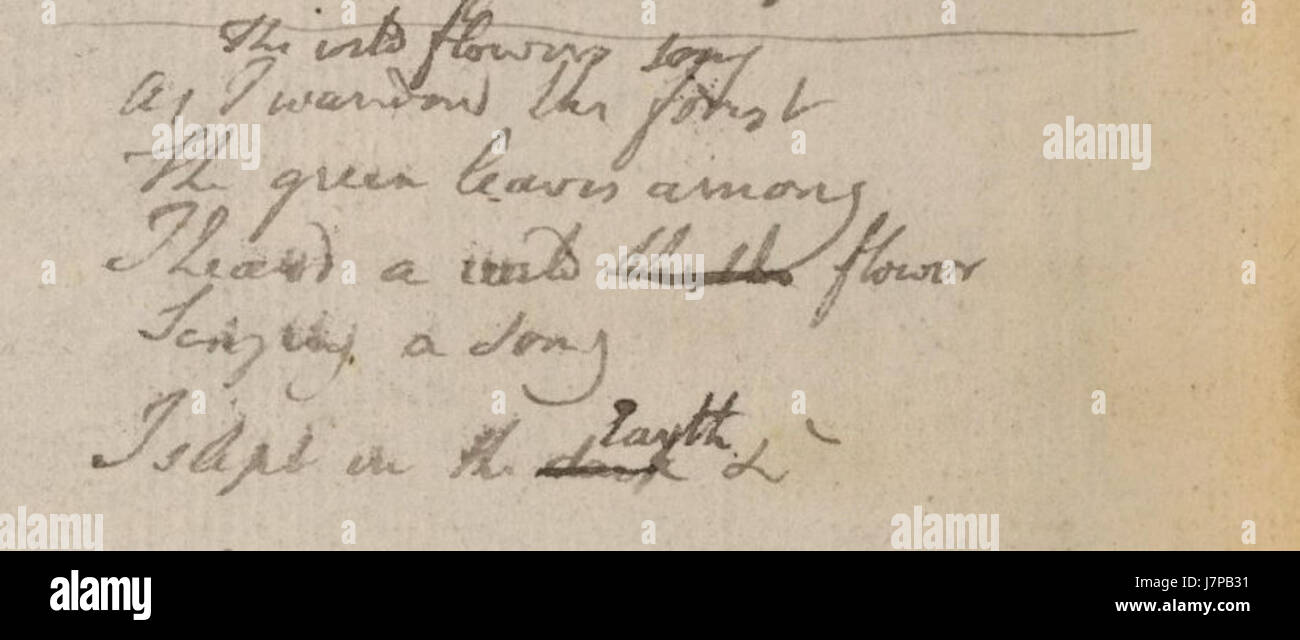 The wild flowers song
As I wanderd the forest
The green leaves among
I heard a wild flower
Singing a Song
I slept in the Earth
dark
alamy
Image ID: J7PB31
www.alamy.com